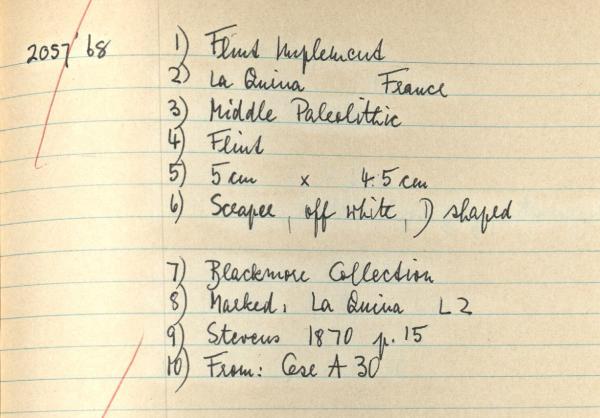 2057'68 1) Flint Implement
2) La Quina France
3) Middle Paleolithic
4) Flint
5) 5 cm x 4.5 cm
6) Scraper, off white, D shaped
7) Blackmore Collection
8) Marked, La Quina L2
9) Stevens 1870 p. 15
10) From: Case A 30